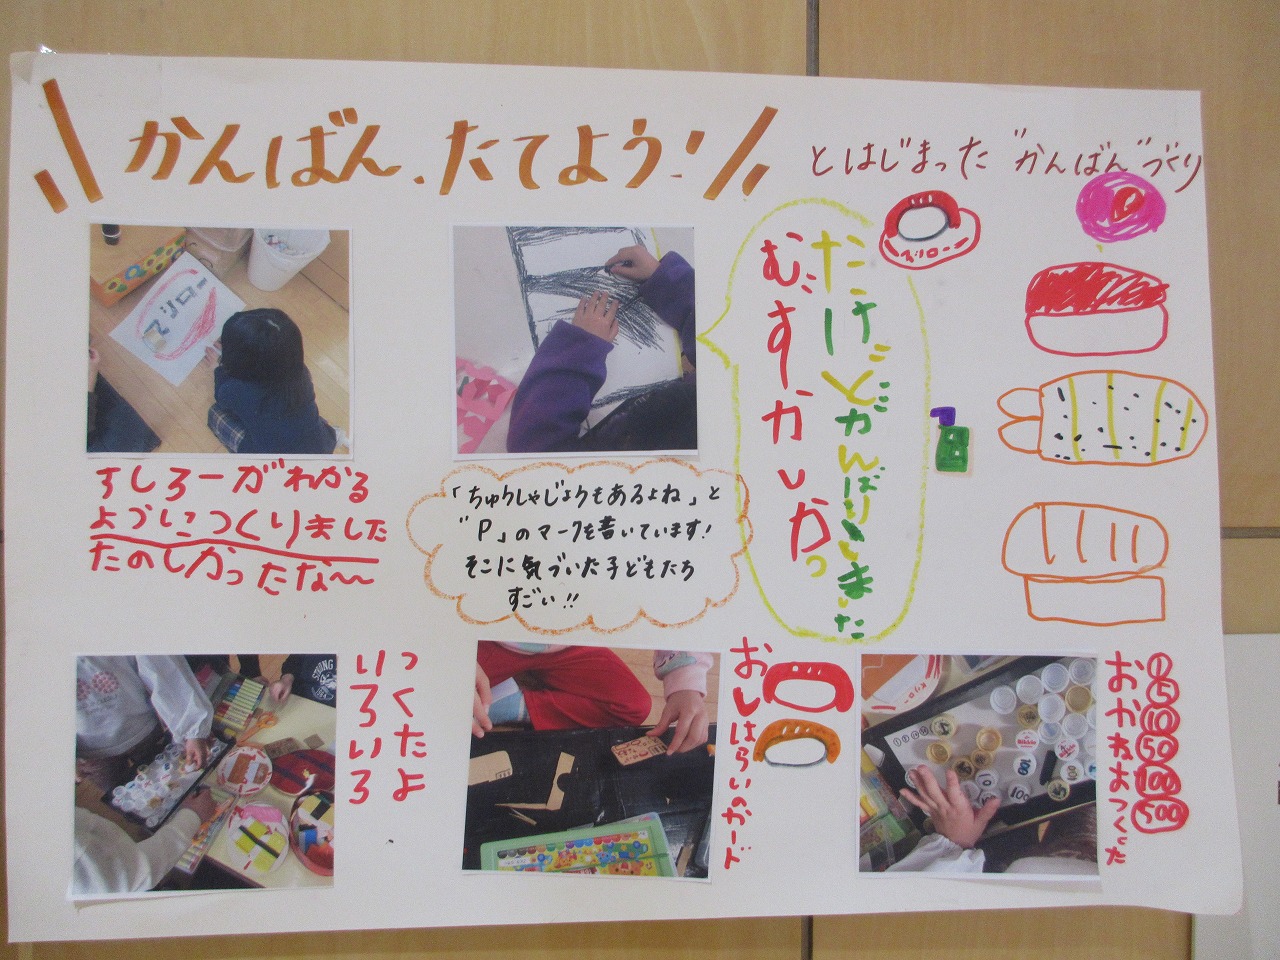 かんばん、たてよう!
とはじまった "かんばん"づくり
スシロー
すしろーがわかる
ようにつくりました
たのしかったな〜〜
「ちゅうしゃじょうもあるよね」と
"P"のマークを書いています!
そこに気づいた子どもたち
すごい!!
むずかしかっ
たけどがんばりました
つくたよ
いろいろ
おしはらいのかード
① ⑤ ⑩ 50 100 500
おかねおつくた